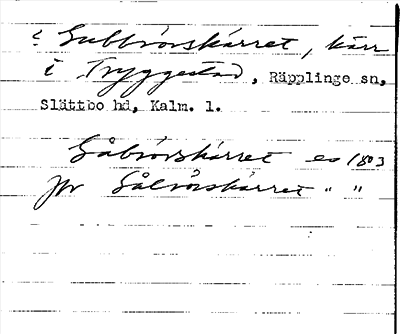 : Gubbrörskärret, kärr
i Tryggestad, Räpplinge sn,
Slättbo hd, Kalm. l.
Gåbrörskärret es 1803
Jfr Gålrörskärret " "